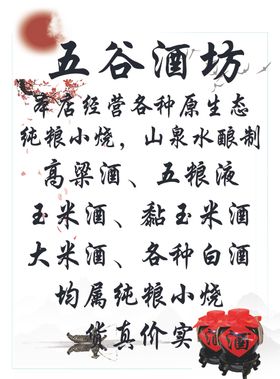 五谷酒坊
本店经营各种原生态
纯粮小烧，山泉水酿制
高梁酒、五粮液
玉米酒、黏玉米酒
大米酒、各种白酒
均属纯粮小烧
货真价实
酒